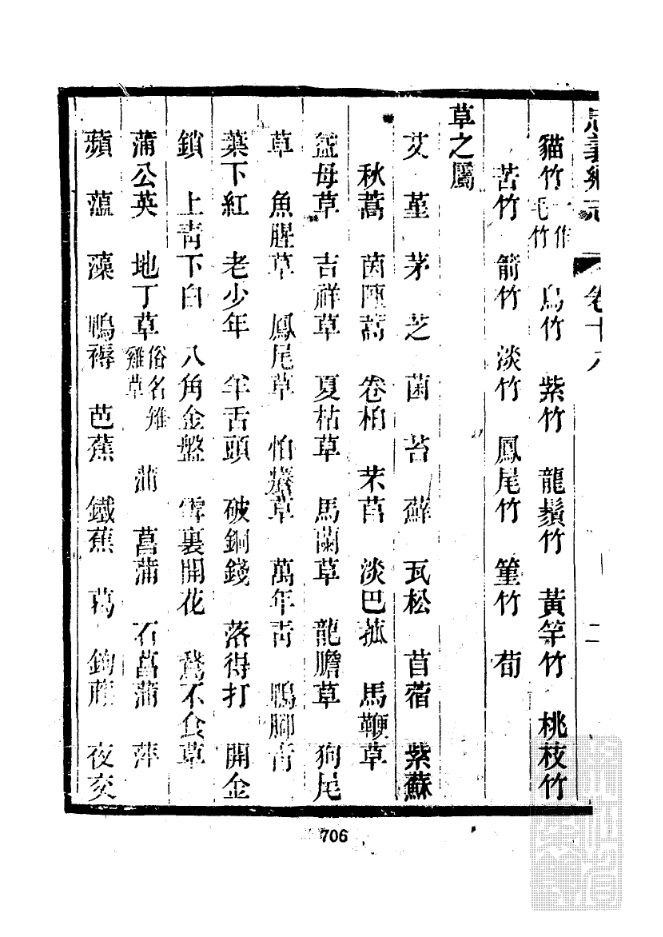 忠義鄉志 卷十八 二
貓竹一作毛竹 烏竹 紫竹 龍鬚竹 黃竿竹 桃枝竹
苦竹 箭竹 淡竹 鳳尾竹 篁竹 荀
草之屬
艾 菫 茅 芝 菌 苔 蘚 瓦松 苜蓿 紫蘇
秋蒿 茵陳蒿 卷柏 芣苢 淡巴菰 馬鞭草
益母草 吉祥草 夏枯草 馬蘭草 龍膽草 狗尾
草 魚腥草 鳳尾草 怕癢草 萬年青 鴨腳青
葉下紅 老少年 年舌頭 破銅錢 落得打 開金
鎖 上青下白 八角金盤 雪裏開花 鵞不食草
蒲公英 地丁草俗名雉雞草 蒲 菖蒲 石菖蒲 萍
蘋 薀 藻 鴨褥 芭蕉 鐵蕉 萵 鉤 夜交
706